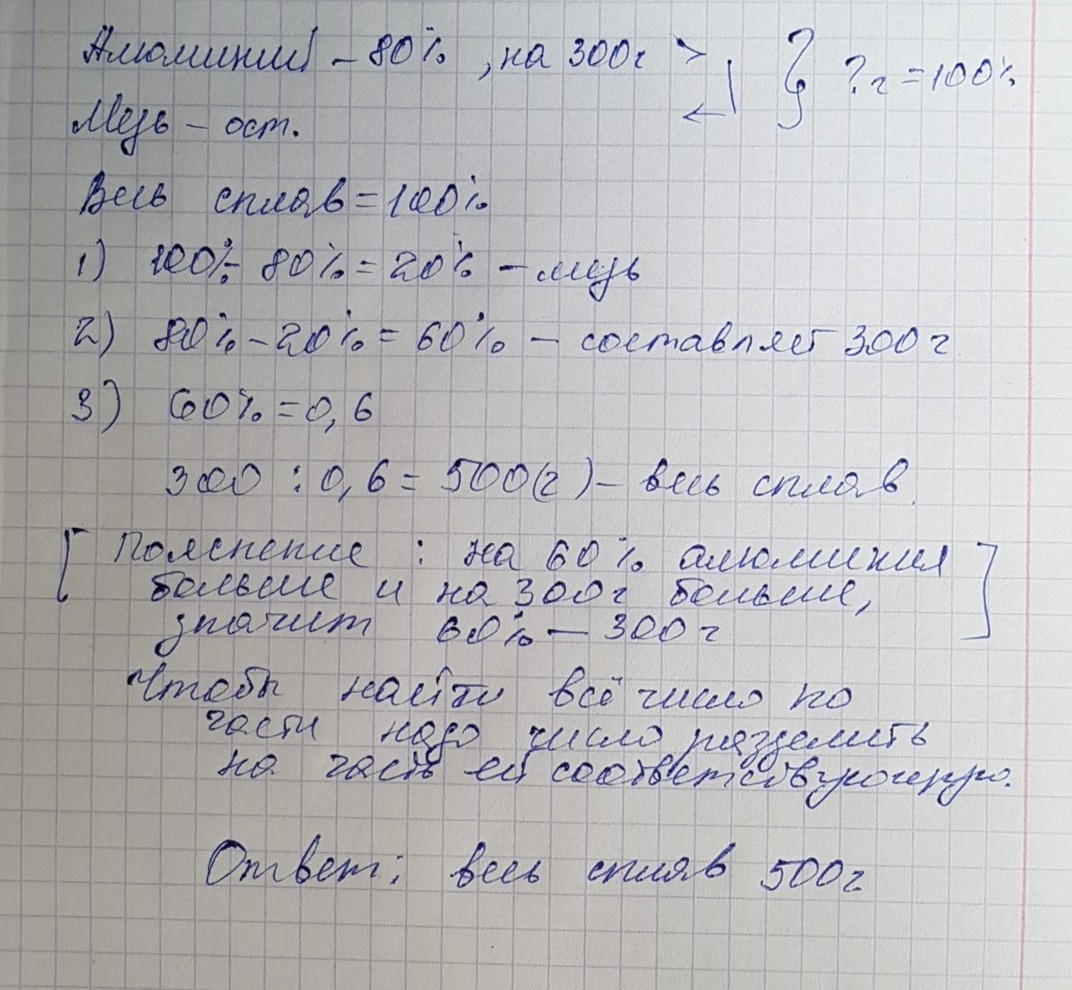 Алюминий – 80%, на 300г > } ?г = 100%
Медь – ост. ←
Весь сплав = 100%
1) 100% - 80% = 20% – медь
2) 80% – 20% = 60% – составляет 300г
3) 60% = 0,6
300 : 0,6 = 500(г) – весь сплав.
[Пояснение : на 60% алюминия
больше и на 300г больше,
значит 60% – 300г]
Чтобы найти всё число по
части надо число разделить
на часть ей соответствующую.
Ответ: весь сплав 500г